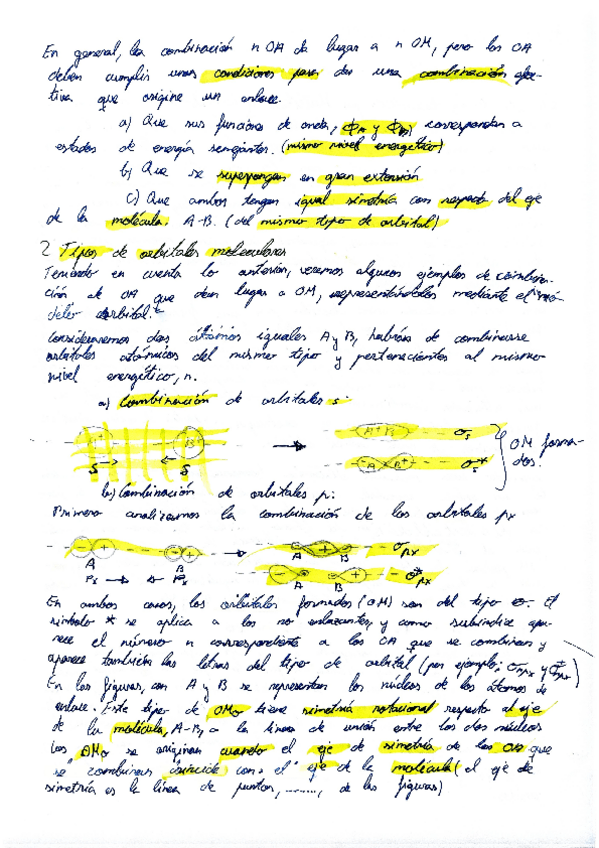 En general, la combinación n OA da lugar a n OM, pero los OA
deben cumplir unas condiciones para dar una combinación efec-
tiva que origine un enlace.
a) Que sus funciones de onda, ϕA y ϕB, correspondan a
estados de energía semejantes. (mismo nivel energético)
b) Que se superpongan en gran extensión
c) Que ambos tengan igual simetría con respecto del eje
de la molécula. A-B. (del mismo tipo de orbital)
2 Tipos de orbitales moleculares
Teniendo en cuenta lo anterior, veremos algunos ejemplos de combina-
ción de OA que dan lugar a OM, representándolos mediante el mo-
delo orbital.
Consideraremos dos átomos iguales A y B, habrán de combinarse
orbitales atómicos del mismo tipo y pertenecientes al mismo
nivel energético, n.
a) Combinación de orbitales s.
B
A+B
σs
OM forma-
dos.
S
S
A
B+
σs*
b) Combinación de orbitales p:
Primero analizamos la combinación de los orbitales px
- + - +
- + -
A B
σpx
A
B
Px
Px
A
B
σ*px
En ambos casos, los orbitales formados (OM) son del tipo σ. El
símbolo * se aplica a los no enlazantes, y como subíndice apa-
rece el número n correspondiente a los OA que se combinan y
aparece también las letras del tipo de orbital (por ejemplo; σnpx y σ*npx)
En las figuras, con A y B se representan los núcleos de los átomos de
enlace. Este tipo de OMσ tiene simetría rotacional respecto al eje
de la molécula, A-B, o la línea de unión entre los dos núcleos
Los OMσ se originan cuando el eje de simetría de los OA que
se combinan coincide con el eje de la molécula (el eje de
simetría es la línea de puntos, ........, de las figuras)